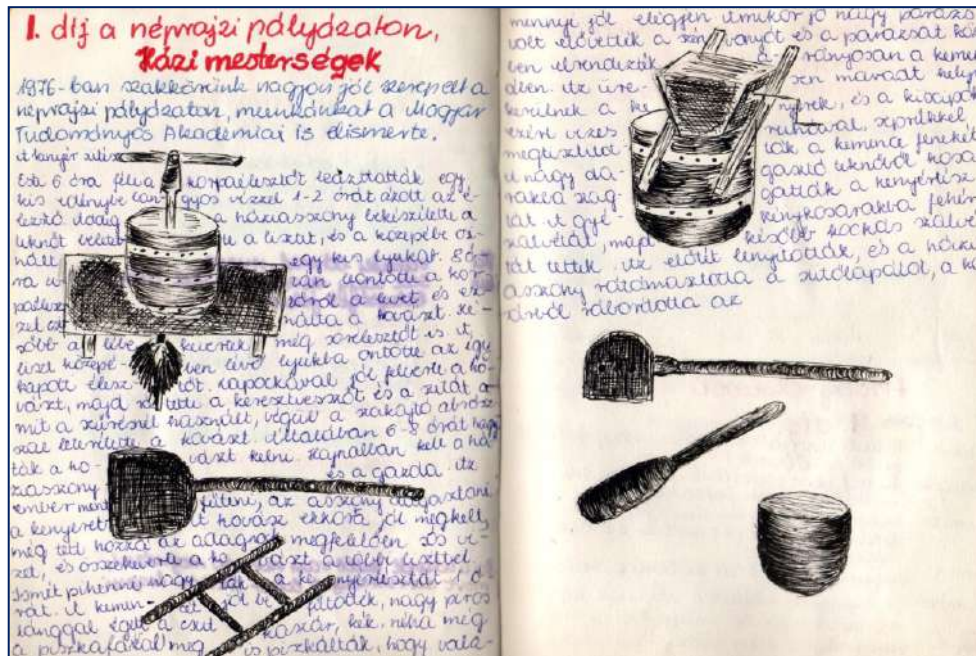 I. díj a néprajzi pályázaton,
Házi mesterségek
1976-ban szakkörünk nagyon jól szerepelt a
néprajzi pályázaton, munkánkat a Magyar
Tudományos Akadémiai is elismerte.
A kenyér
Esti 6 óra felé a korpaélesztőt leáztatták egy
kis edénybe langyos vízzel 1-2 órát ázott az é-
lesztő. Addig a háziasszony bekészítette a
teknőt a lisztet, és a közepébe csi-
nált egy kis lyukat.
öntötte a kor-
a levet és ez-
zel a kovászt. Ké-
sőbb a kevertek még sörélesztőt is. A
liszt közepé- ben lévő lyukba öntötte az így
kapott élesz- tőt. Lapockával jól felverte a ko-
vászt, majd rátette a keresztvesszőt és a szitát a
mit a szitálásnál használt, végül a szakajtó abrosz-
szal leterítette a kovászt. Általában 6-8 órát hagy-
ták a ko- vászt kelni. Hajnalban kelt a há-
ziasszony és a gazda. Az
ember ment fűteni, az asszony dagasztani
a kenyeret. A kovász ekkorra jól megkelt,
még tett hozzá az adagnak megfelelően sós vi-
zet, és összekeverte a ko- vászt a többi liszttel.
Ismét pihenni hagy- ták a kenyértésztát 1 ó-
rát. A kemen- cét jól be- fűtötték, nagy piros
lánggal égett a csut- kaszár, kék. néha még
a piszkafával meg is piszkálták, hogy vala-
mennyi jól elégjen. Amikor jó nagy parázs
volt elővették a szénvonyót és a parazsat kör-
ben elrendezték arányosan a kemen-
cében. Az üre- sen maradt hely
kerülnek a ke- nyerek, és a
vizes ruhával, seprűkkel,
megtisztítot- ták a kemence fenekét.
A nagy da- gasztó teknőről
rakba szag- gatták a kenyértész-
tát. A gyé- kénykosarakba fehér
szalvétát, majd később kockás szalvé-
tát tettek. Az előtét lenyitották, és a házi-
asszony rátámasztotta a sütőlapátot, a ko-
sárból ráborította az